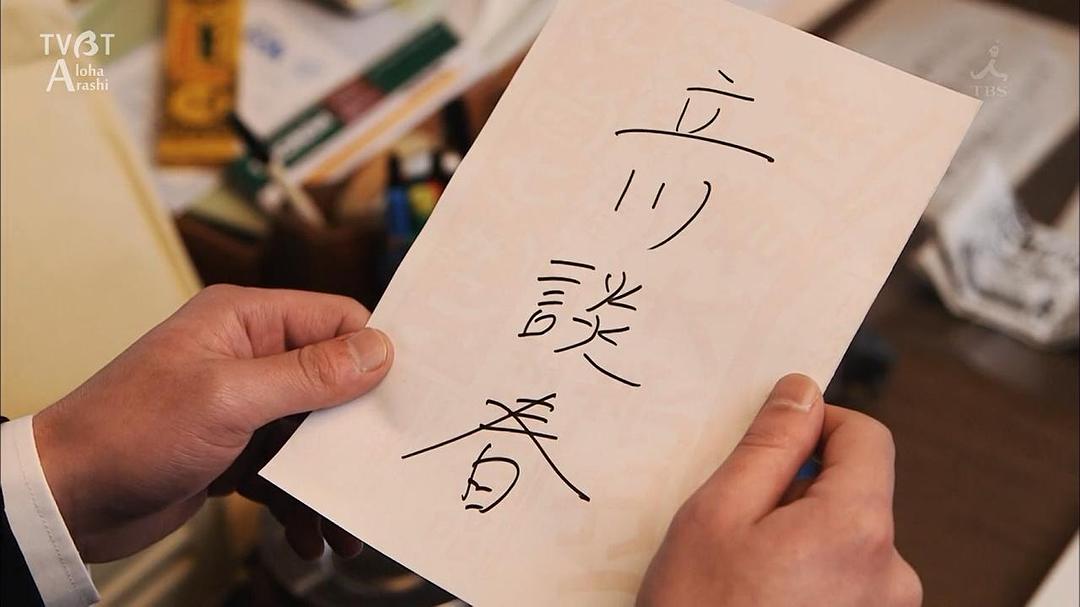 TVBT
Aloha
Arashi
TBS
立川談春